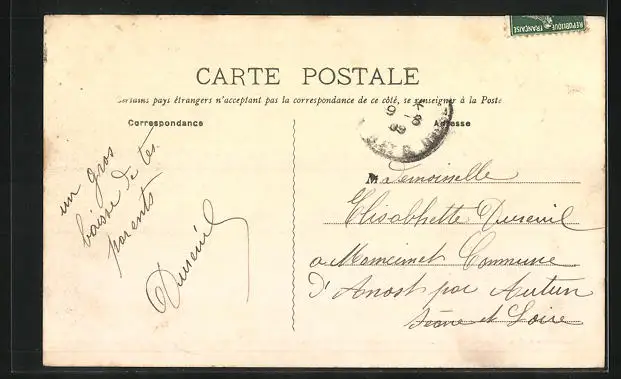 REPUBLIQUE FRANÇAISE
CARTE POSTALE
Certains pays étrangers n'acceptant pas la correspondance de ce côté, se renseigner à la Poste
Correspondance
un gros
baisse de tes
parents
Dureuil
Adresse
Mademoiselle
Elisabhette Dureuil
a Momcimet Commune
d'Anost par Autun
Saône et Loire